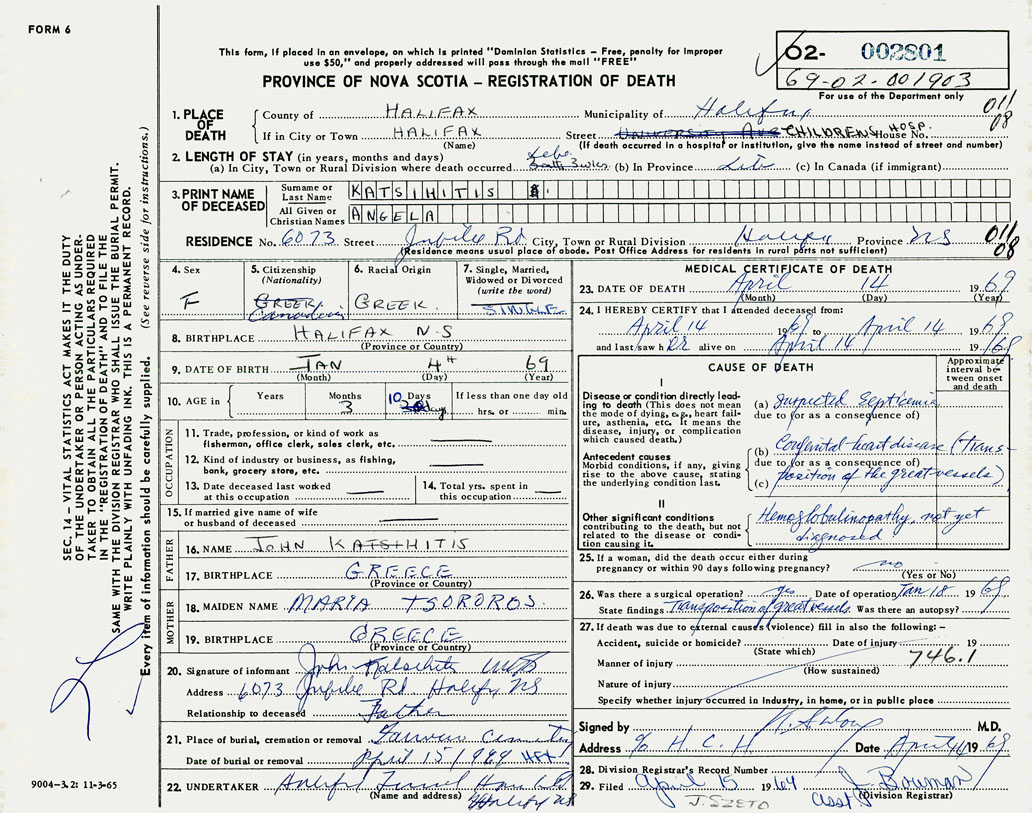 FORM 6
This form, if placed in an envelope, on which is printed "Dominion Statistics – Free, penalty for improper
use $50," and properly addressed will pass through the mail "FREE"
PROVINCE OF NOVA SCOTIA – REGISTRATION OF DEATH
02- 002801
69-02-001903
For use of the Department only
1. PLACE OF DEATH
County of HALIFAX Municipality of Halifax 011
If in City or Town HALIFAX Street UNIVERSITY AVE CHILDRENS HOSP. House No. 08
(Name) (If death occurred in a hospital or institution, give the name instead of street and number)
2. LENGTH OF STAY (in years, months and days)
(a) In City, Town or Rural Division where death occurred (b) In Province Life (c) In Canada (if immigrant)
3. PRINT NAME OF DECEASED
Surname or Last Name KATSIHITIS
All Given or Christian Names ANGELA
RESIDENCE No. 6073 Street Jubilee Rd City, Town or Rural Division Halifax Province NS 011
(Residence means usual place of abode. Post Office Address for residents in rural parts not sufficient) 08
4. Sex
F
5. Citizenship
(Nationality)
GREEK
Canadian
6. Racial Origin
GREEK
7. Single, Married, Widowed or Divorced
(write the word)
SINGLE
8. BIRTHPLACE HALIFAX N-S
(Province or Country)
9. DATE OF BIRTH JAN 4th 69
(Month) (Day) (Year)
10. AGE in Years Months Days If less than one day old
3 10 hrs. or min.
OCCUPATION
11. Trade, profession, or kind of work as
fisherman, office clerk, sales clerk, etc.
12. Kind of industry or business, as fishing,
bank, grocery store, etc.
13. Date deceased last worked
at this occupation
14. Total yrs. spent in
this occupation
15. If married give name of wife
or husband of deceased
FATHER
16. NAME JOHN KATSIHITIS
17. BIRTHPLACE GREECE
(Province or Country)
MOTHER
18. MAIDEN NAME MARIA TSOROROS.
19. BIRTHPLACE GREECE
(Province or Country)
20. Signature of informant John
Address 6073 Jubilee Rd. Halifax NS
Relationship to deceased Father
21. Place of burial, cremation or removal
Date of burial or removal April 15/1969
22. UNDERTAKER Halifax Funeral Home
(Name and address) Halifax NS
MEDICAL CERTIFICATE OF DEATH
23. DATE OF DEATH April 14 1969
(Month) (Day) (Year)
24. I HEREBY CERTIFY that I attended deceased from:
April 14 1969 to April 14 1969
and last saw her alive on April 14 1969
CAUSE OF DEATH
Approximate interval between onset and death
I
Disease or condition directly leading to death (This does not mean the mode of dying, e.g., heart failure, asthenia, etc. It means the disease, injury, or complication which caused death.)
(a) Suspected Septicemia
due to (or as a consequence of)
Antecedent causes
Morbid conditions, if any, giving rise to the above cause, stating the underlying condition last.
(b) Congenital heart disease (trans-
due to (or as a consequence of)
(c) position of the great vessels)
II
Other significant conditions contributing to the death, but not related to the disease or condition causing it.
Hemoglobulinopathy, not yet
diagnosed
25. If a woman, did the death occur either during
pregnancy or within 90 days following pregnancy? no
(Yes or No)
26. Was there a surgical operation? yes Date of operation Jan 18 1969
State findings Transposition of great vessels. Was there an autopsy?
27. If death was due to external causes (violence) fill in also the following: –
Accident, suicide or homicide? Date of injury 19
(State which)
Manner of injury 746.1
(How sustained)
Nature of injury
Specify whether injury occurred in Industry, in home, or in public place
Signed by M.D.
Address % H. C. H Date April 1969
28. Division Registrar's Record Number
29. Filed April 15 1969 J. Bowman
J. SZETO Asst. (Division Registrar)
SEC. 14 – VITAL STATISTICS ACT MAKES IT THE DUTY
OF THE UNDERTAKER OR PERSON ACTING AS UNDER-
TAKER TO OBTAIN ALL THE PARTICULARS REQUIRED
IN THE "REGISTRATION OF DEATH" AND TO FILE THE
SAME WITH THE DIVISION REGISTRAR WHO SHALL ISSUE THE BURIAL PERMIT.
WRITE PLAINLY WITH UNFADING INK. THIS IS A PERMANENT RECORD.
Every item of information should be carefully supplied. (See reverse side for instructions.)
9004-3.2: 11-3-65